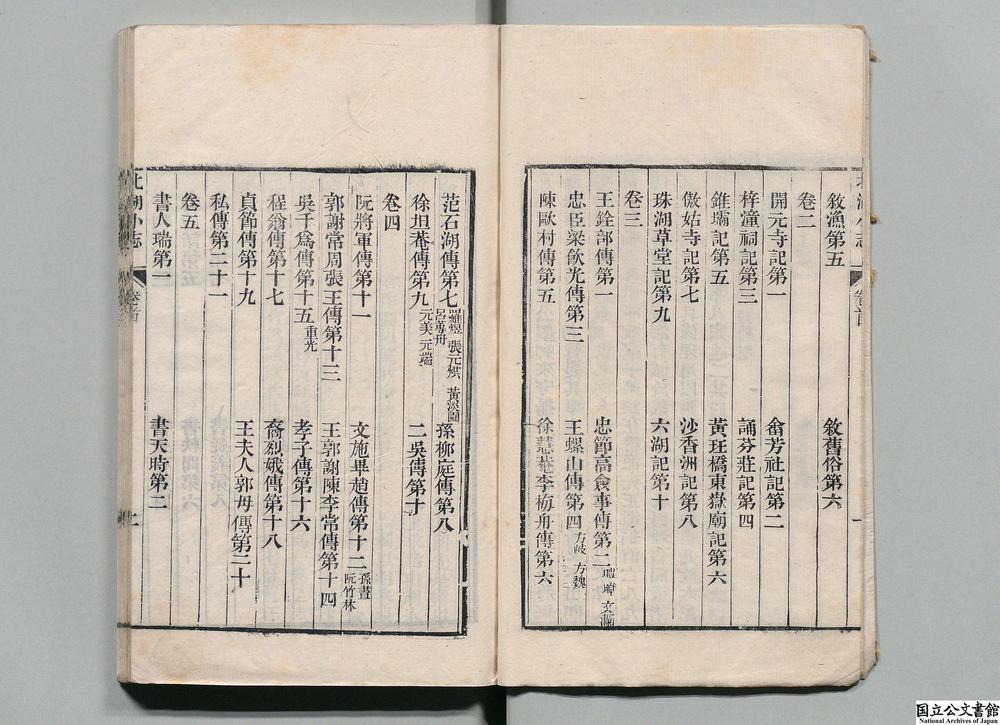 敘漁第五 敘舊俗第六
卷二
開元寺記第一 翕芳社記第二
梓潼祠記第三 誦芬莊記第四
錐壩記第五 黃玨橋東嶽廟記第六
倣姑寺記第七 沙香洲記第八
珠湖草堂記第九 六湖記第十
卷三
王銓部傳第一 忠節高僉事傳第二 文瀾
忠臣梁飲光傳第三 王螺山傳第四 方岐 方魏
陳歐村傳第五 徐慧菴李梅舟傳第六
范石湖傳第七 羅煜 張元 黃 呂 孫柳庭傳第八
徐坦菴傳第九 元美 元端 二吳傳第十
卷四
阮將軍傳第十一 文施畢趙傳第十二 孫畫 阮竹林
郭謝常周張王傳第十三 王郭謝陳李常傳第十四
吳千爲傳第十五 重光 孝子傳第十六
程翁傳第十七 裔烈娥傳第十八
貞節傳第十九 王夫人郭母傳第二十
私傳第二十一
卷五
書人瑞第一 書天時第二
北湖小志 卷首
國立公文書館
National Archives of Japan